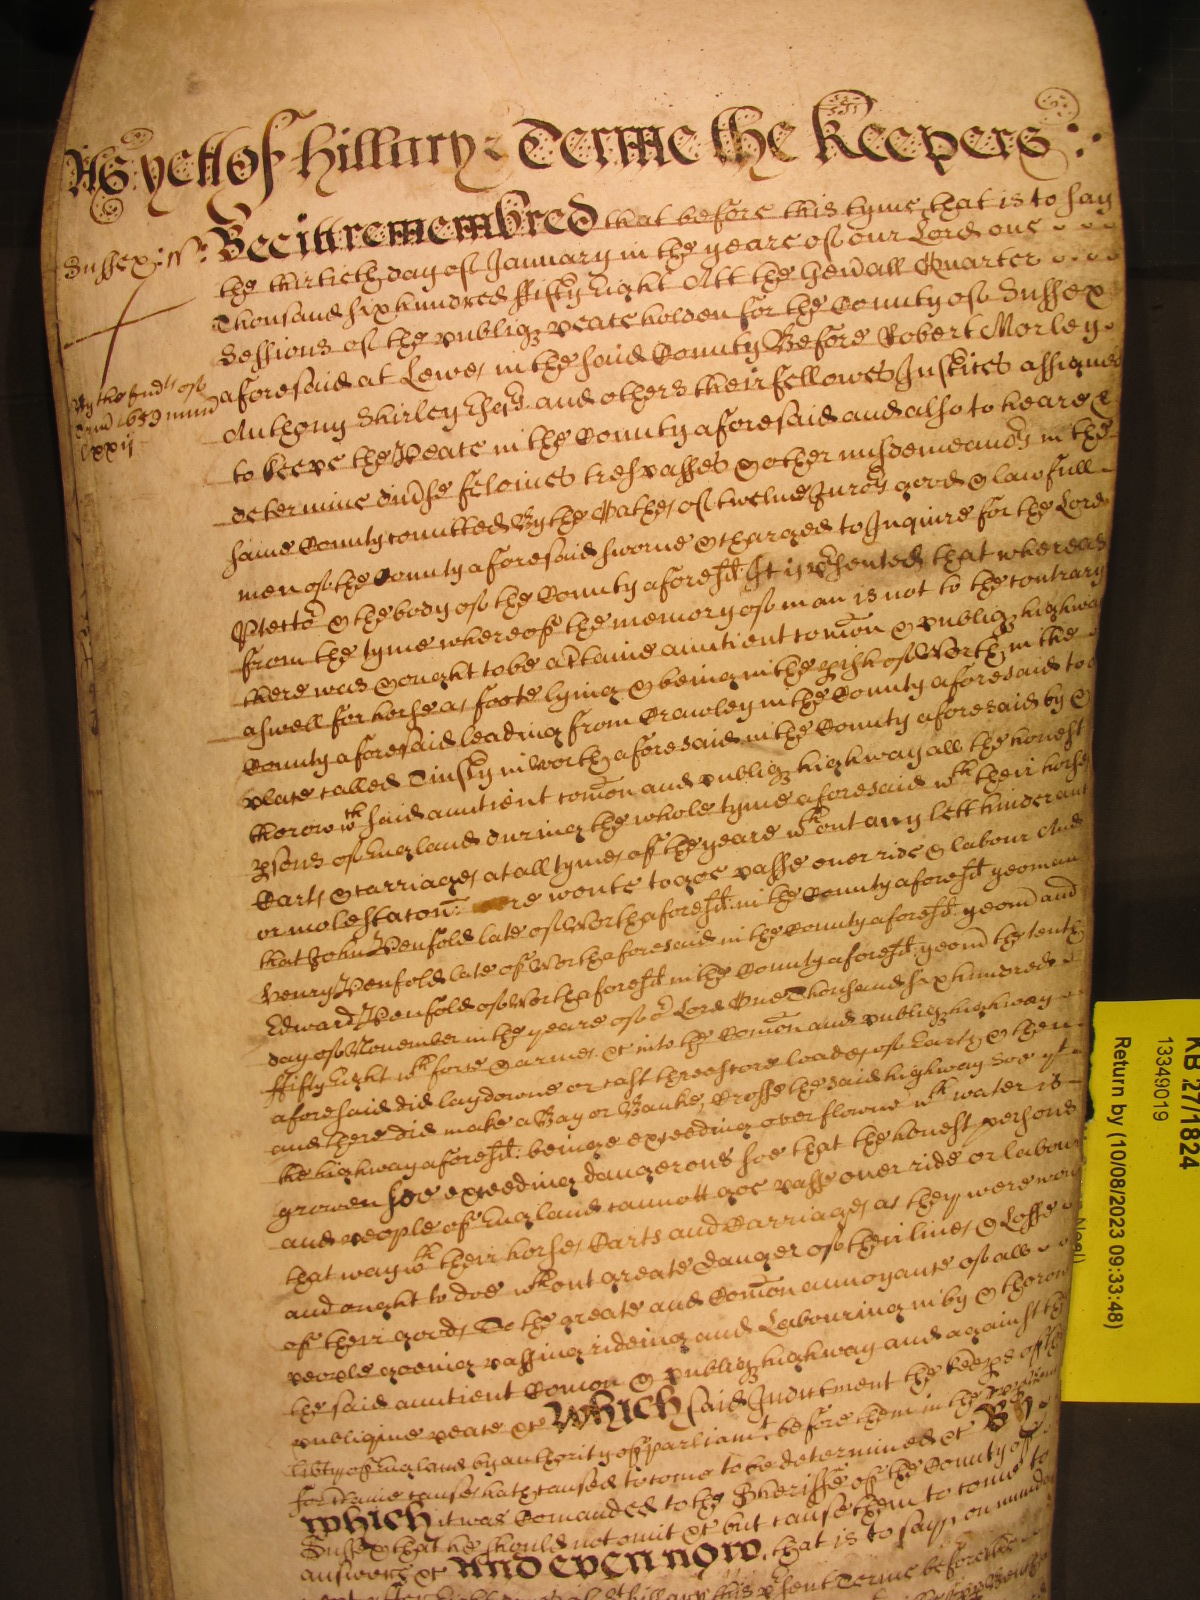 As yett of Hillary Terme the Keepers
Sussex ss. Bee itt remembred that before this tyme that is to say
the thirtieth day of January in the yeare of our Lord one
Thousand six hundred fifty Eight Att the Gen'all Quarter
Sessions of the publiq peace holden for the County of Sussex
aforesaid at Lewes in the said County Before Robert Morley
Anthony Shirley Esqrs and others their fellowes Justices assigned
to keepe the Peace in the County aforesaid and also to heare &
determine div'se felonies trespasses & other misdemeanors in the
same County comitted By the Oathes of twelve Jurors good & lawfull
men of the County aforesaid sworne & charged to Inquire for the Lord
P'tector & the body of the County aforesd. It is p'sented that whereas
from the tyme whereof the memory of man is not to the contrary
there was & ought to be a c'taine auntient com'on & publiq highway
aswell for horse as foote lying & being in the p'ish of Worth in the
County aforesaid leading from Crawley in the County aforesaid to a
place called Tinsly in Worth aforesaid in the County aforesaid by &
thorow wch said auntient com'on and publiq highway all the honest
p'sons of England during the whole tyme aforesaid wth their horses
Carts & carriages at all tymes of the yeare wthout any lett hinderance
or molestacon were wonte to goe passe over ride & labour And
that John Penfold late of Worth aforesd. in the County aforesd. yeoman
Henry Penfold late of Worth aforesaid in the County aforesd. yeom' and
Edward Penfold of Worth aforesd in the County aforesd. yeom' the tenth
day of November in the yeare of or Lord One Thousand six hundred
fifty Eight wth force & armes &c into the Com'on and publiq highway
aforesaid did lay downe or cast threescore loades of Earth & then
and there did make a Bay or Banke Crosse the said highway soe yt
the highway aforesd. beinge exceeding overflowne wth water is
growen soe exceeding dangerous soe that the honest persons
and people of England cannott goe passe over ride or labour
that way wth their horses Carts and Carriages as they were wont
and ought to doe wthout greate danger of their lives & Losse
of their goods To the greate and Com'on annoyance of all
people goeing passing rideing and Labouring in by & thorow
the said auntient Comon & publiq highway and against the
publique peace &c Which said Indictment the Keep's of the
lib'ty of England by authority of parliamt. before them in the
for c'taine causes hath caused to come to be determined &c By
which it was Comanded to the Sheriffe of the County of
Sussex that he should not omit &c but cause them to come to
answere &c And even now, that is to say, on munday
Hillary this p'sent Terme before the
KB 27/1824
13349019
Return by (10/08/2023 09:33:48)